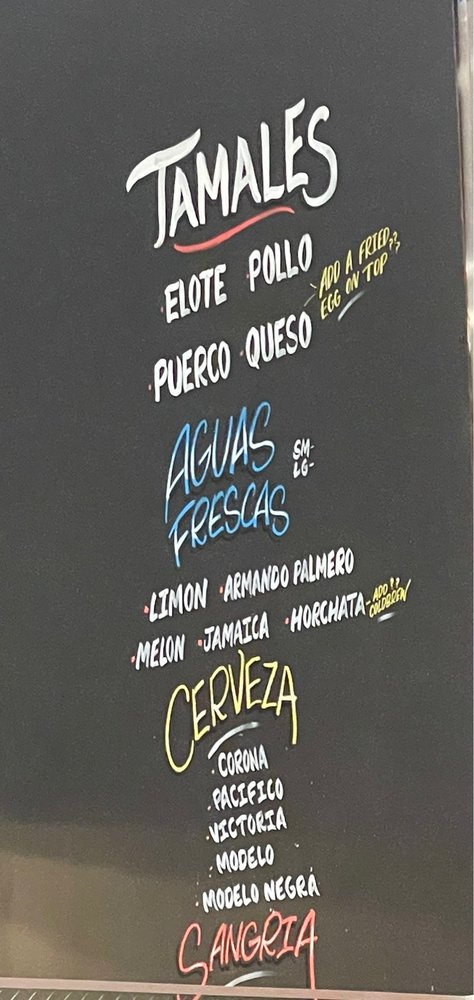 TAMALES
·ELOTE ·POLLO
ADD A FRIED??
EGG ON TOP
·PUERCO ·QUESO
AGUAS
FRESCAS
SM-
LG-
·LIMON ·ARMANDO PALMERO
·MELON ·JAMAICA ·HORCHATA
-ADD??
COLDBREW
CERVEZA
·CORONA
·PACIFICO
·VICTORIA
·MODELO
·MODELO NEGRA
SANGRIA